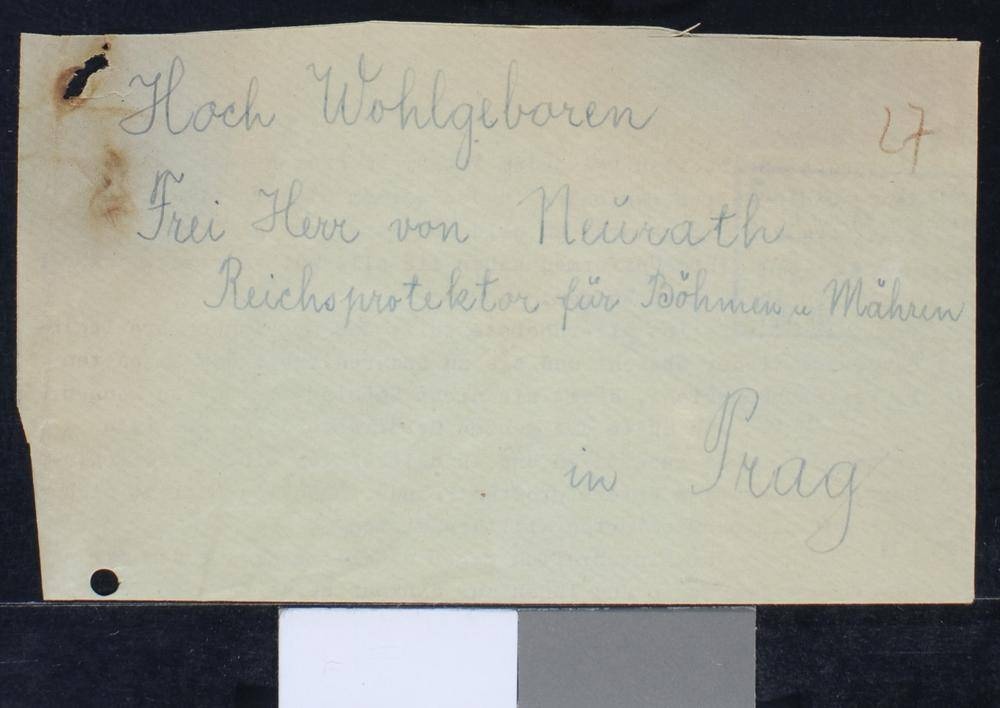 Hoch Wohlgeboren
27
Frei Herr von Neurath
Reichsprotektor für Böhmen u Mähren
in Prag